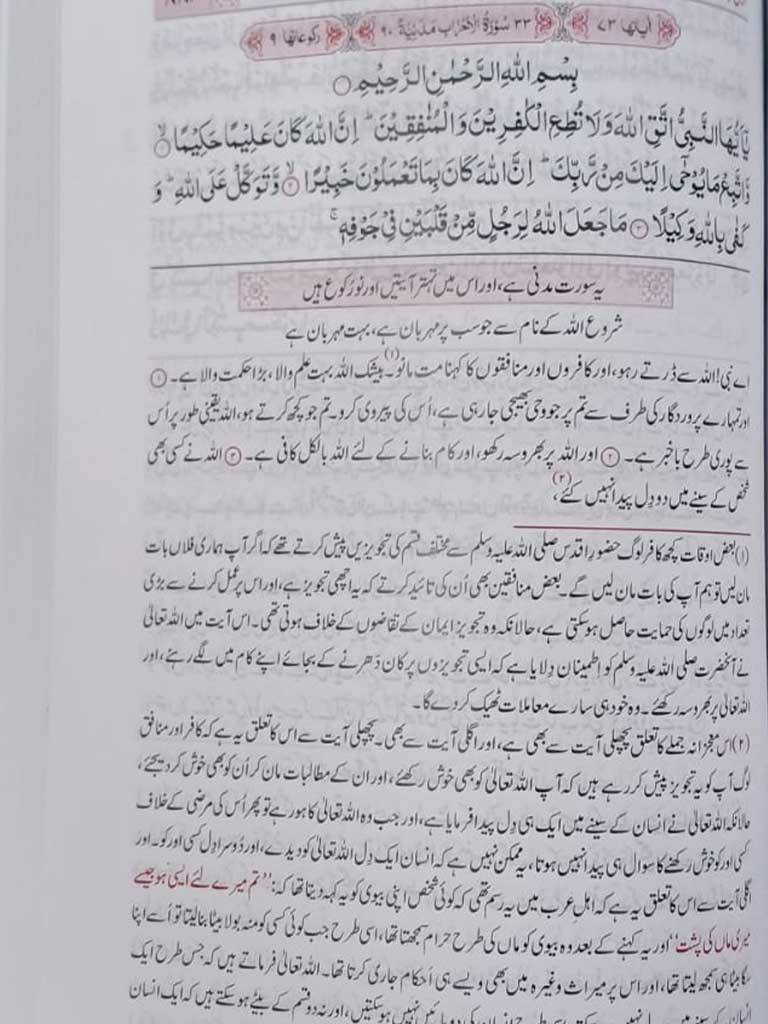 اٰیاتها ۷۳ ۳۳ سُوْرَةُ الْاَحْزَابِ مَدَنِيَّةٌ ۹۰ رکوعاتها ۹
بِسْمِ اللّٰهِ الرَّحْمٰنِ الرَّحِيْمِ ○
يٰۤاَيُّهَا النَّبِيُّ اتَّقِ اللّٰهَ وَلَا تُطِعِ الْكٰفِرِيْنَ وَالْمُنٰفِقِيْنَ ؕ اِنَّ اللّٰهَ كَانَ عَلِيْمًا حَكِيْمًا ۙ﴿۱﴾
وَّاتَّبِعْ مَا يُوْحٰۤى اِلَيْكَ مِنْ رَّبِّكَ ؕ اِنَّ اللّٰهَ كَانَ بِمَا تَعْمَلُوْنَ خَبِيْرًا ۙ﴿۲﴾ وَّتَوَكَّلْ عَلَى اللّٰهِ ؕ وَ
كَفٰى بِاللّٰهِ وَكِيْلًا ﴿۳﴾ مَا جَعَلَ اللّٰهُ لِرَجُلٍ مِّنْ قَلْبَيْنِ فِيْ جَوْفِهٖ ۚ
یہ سورت مدنی ہے، اور اس میں تہتر آیتیں اور نو رُکوع ہیں
شروع اللہ کے نام سے جو سب پر مہربان ہے، بہت مہربان ہے
اے نبی! اللہ سے ڈرتے رہو، اور کافروں اور منافقوں کا کہنا مت مانو۔(۱) بیشک اللہ بہت علم والا، بڑا حکمت والا ہے۔ ﴿۱﴾
اور تمہارے پروردگار کی طرف سے تم پر جو وحی بھیجی جارہی ہے، اُس کی پیروی کرو۔ تم جو کچھ کرتے ہو، اللہ یقینی طور پر اُس
سے پوری طرح باخبر ہے۔ ﴿۲﴾ اور اللہ پر بھروسہ رکھو، اور کام بنانے کے لئے اللہ بالکل کافی ہے۔ ﴿۳﴾ اللہ نے کسی بھی
شخص کے سینے میں دو دِل پیدا نہیں کئے،(۲)
(۱) بعض اوقات کچھ کافر لوگ حضورِ اقدس صلی اللہ علیہ وسلم سے مختلف قسم کی تجویزیں پیش کرتے تھے کہ اگر آپ ہماری فلاں بات
مان لیں تو ہم آپ کی بات مان لیں گے۔ بعض منافقین بھی اُن کی تائید کرتے کہ یہ اچھی تجویز ہے، اور اس پر عمل کرنے سے بڑی
تعداد میں لوگوں کی حمایت حاصل ہوسکتی ہے، حالانکہ وہ تجویز ایمان کے تقاضوں کے خلاف ہوتی تھی۔ اس آیت میں اللہ تعالیٰ
نے آنحضرت صلی اللہ علیہ وسلم کو اِطمینان دِلایا ہے کہ ایسی تجویزوں پر کان دَھرنے کے بجائے اپنے کام میں لگے رہئے، اور
اللہ تعالیٰ پر بھروسہ رکھئے۔ وہ خود ہی سارے معاملات ٹھیک کردے گا۔
(۲) اس معجزانہ جملے کا تعلق پچھلی آیت سے بھی ہے، اور اگلی آیت سے بھی۔ پچھلی آیت سے اس کا تعلق یہ ہے کہ کافر اور منافق
لوگ آپ کو یہ تجویز پیش کررہے ہیں کہ آپ اللہ تعالیٰ کو بھی خوش رکھئے، اور ان کے مطالبات مان کر اُن کو بھی خوش کردیجئے،
حالانکہ اللہ تعالیٰ نے انسان کے سینے میں ایک ہی دِل پیدا فرمایا ہے، اور جب وہ اللہ تعالیٰ کا ہو رہے تو پھر اُس کی مرضی کے خلاف
کسی اور کو خوش رکھنے کا سوال ہی پیدا نہیں ہوتا، یہ ممکن نہیں ہے کہ انسان ایک دِل اللہ تعالیٰ کو دیدے، اور دُوسرا دِل کسی اور کو۔ اور
اگلی آیت سے اس کا تعلق یہ ہے کہ اہلِ عرب میں یہ رسم تھی کہ کوئی شخص اپنی بیوی کو یہ کہہ دیتا تھا کہ: ”تم میرے لئے ایسی ہو جیسے
میری ماں کی پشت“ اور یہ کہنے کے بعد وہ بیوی کو ماں کی طرح حرام سمجھتا تھا، اسی طرح جب کوئی کسی کو منہ بولا بیٹا بنالیتا تو اُسے اپنا
سگا بیٹا ہی سمجھ لیتا تھا، اور اس پر میراث وغیرہ میں بھی ویسے ہی اَحکام جاری کرتا تھا۔ اللہ تعالیٰ فرماتے ہیں کہ جس طرح ایک
انسان کے سینے میں نہیں ہوسکتے، طرح انسان کی دو مائیں نہیں ہوسکتیں، اور نہ دو قسم کے بیٹے ہوسکتے ہیں کہ ایک انسان